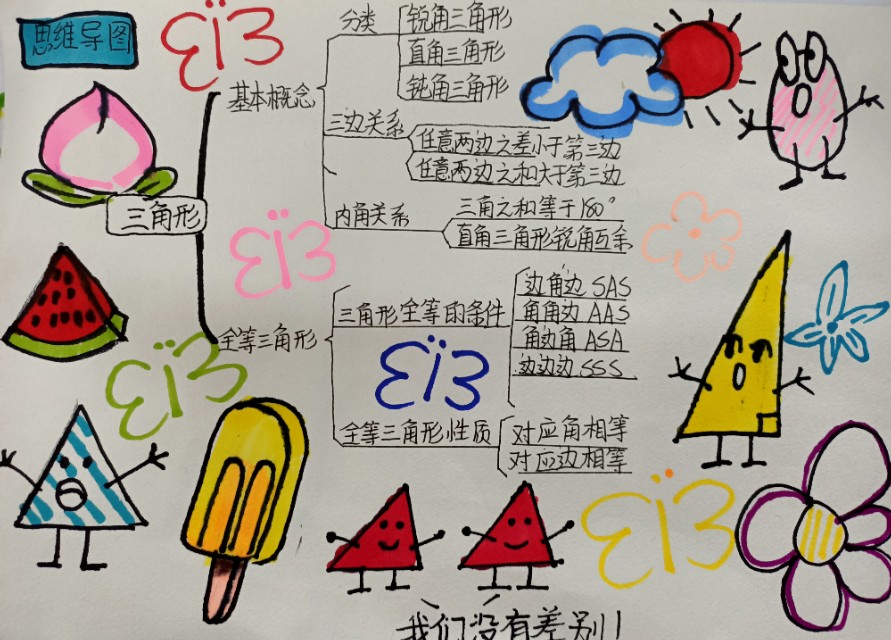 思维导图
三角形
基本概念
分类
锐角三角形
直角三角形
钝角三角形
三边关系
任意两边之差小于第三边
任意两边之和大于第三边
内角关系
三角之和等于180°
直角三角形锐角互余
全等三角形
三角形全等的条件
边角边 SAS
角角边 AAS
角边角 ASA
边边边 SSS
全等三角形性质
对应角相等
对应边相等
我们没有差别!